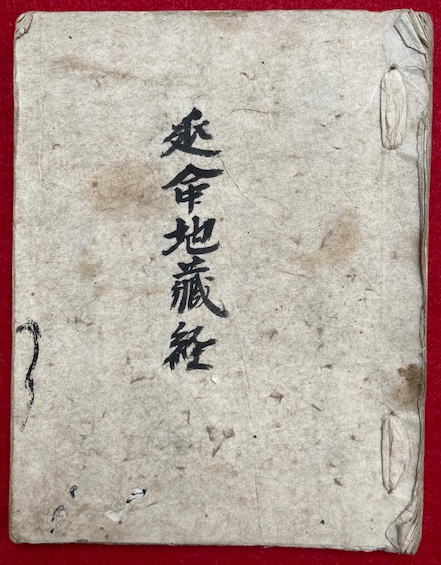 延命地藏経